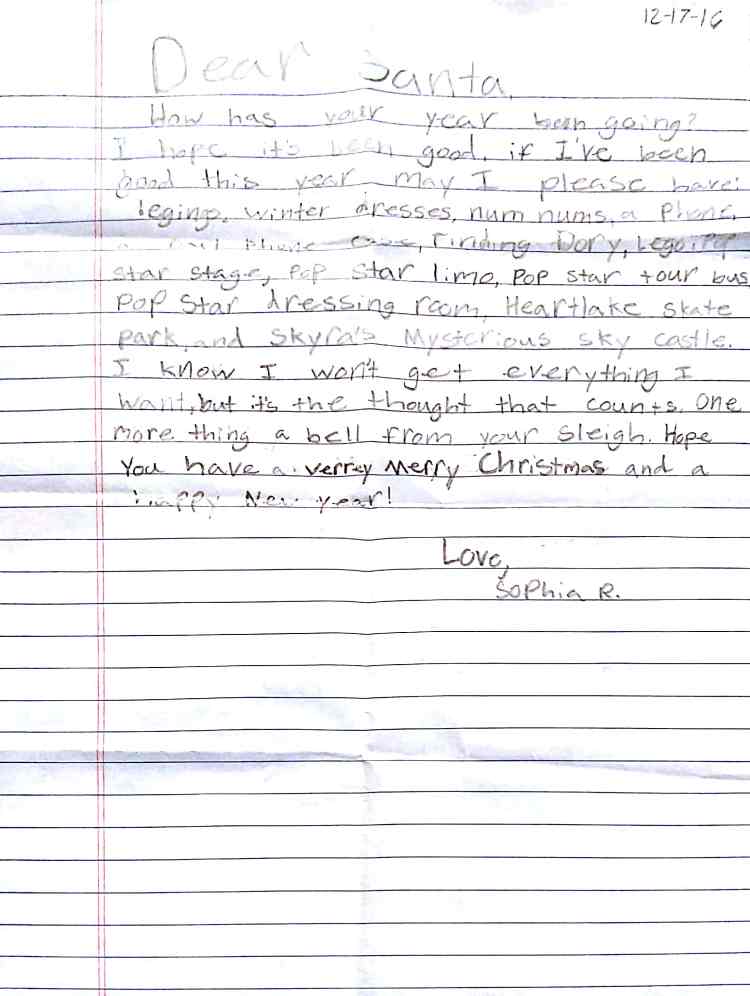 12-17-16
Dear Santa,
How has your year been going?
I hope it's been good. if I've been
good this year may I please have:
legings, winter dresses, num nums, a Phone,
Phone case, Finding Dory, Lego: Pop
star stage, Pop star limo, Pop star tour bus
Pop Star dressing room, Heartlake skate
park, and Skyra's Mysterious sky castle.
I know I won't get everything I
want, but it's the thought that counts. One
more thing a bell from your sleigh. Hope
You have a verrey Merry Christmas and a
happy New year!
Love,
Sophia R.